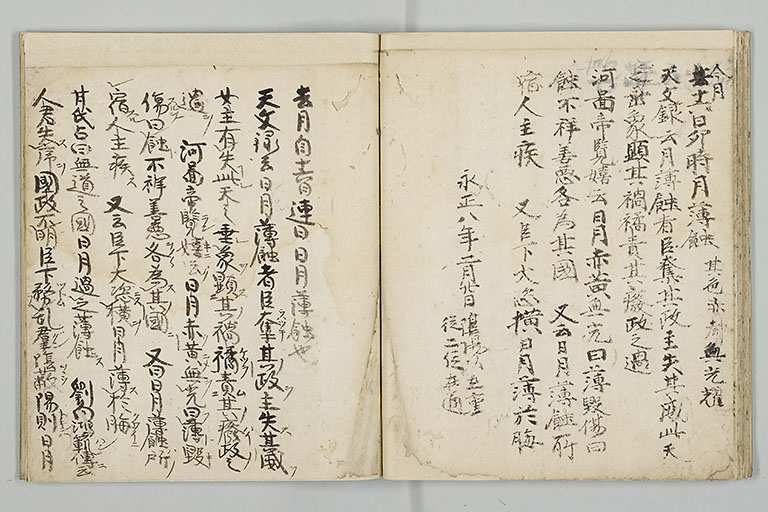 今月
廿六日卯時月薄蝕 其色赤 無光耀
天文録云月薄蝕者臣奪其政主失其威此天
之垂象顕其禍福責其廃政之過
河啚帝覧嬉云日月赤黄無光曰薄毀傷曰
蝕不祥善悪各為其國 又云日月薄蝕所
宿人主疾 又臣下大恣横日月薄於晦
永正八年二月 日
従二位在通
去月自 日連日日月薄蝕也
天文録云日月薄蝕者臣奪其政主失其威
女主有失此天之垂象顕其禍福責其廃政之
過 河啚帝覧嬉云日月赤黄無光曰薄毀
傷曰蝕不祥善悪各為其國 又曰日月薄蝕所
宿人主疾 又云臣下大恣横日月薄於晦
甘氏占曰無道之國日月過之薄蝕 劉向鴻範傳云
人君失序國政不明臣下務乱羣 陽則日月